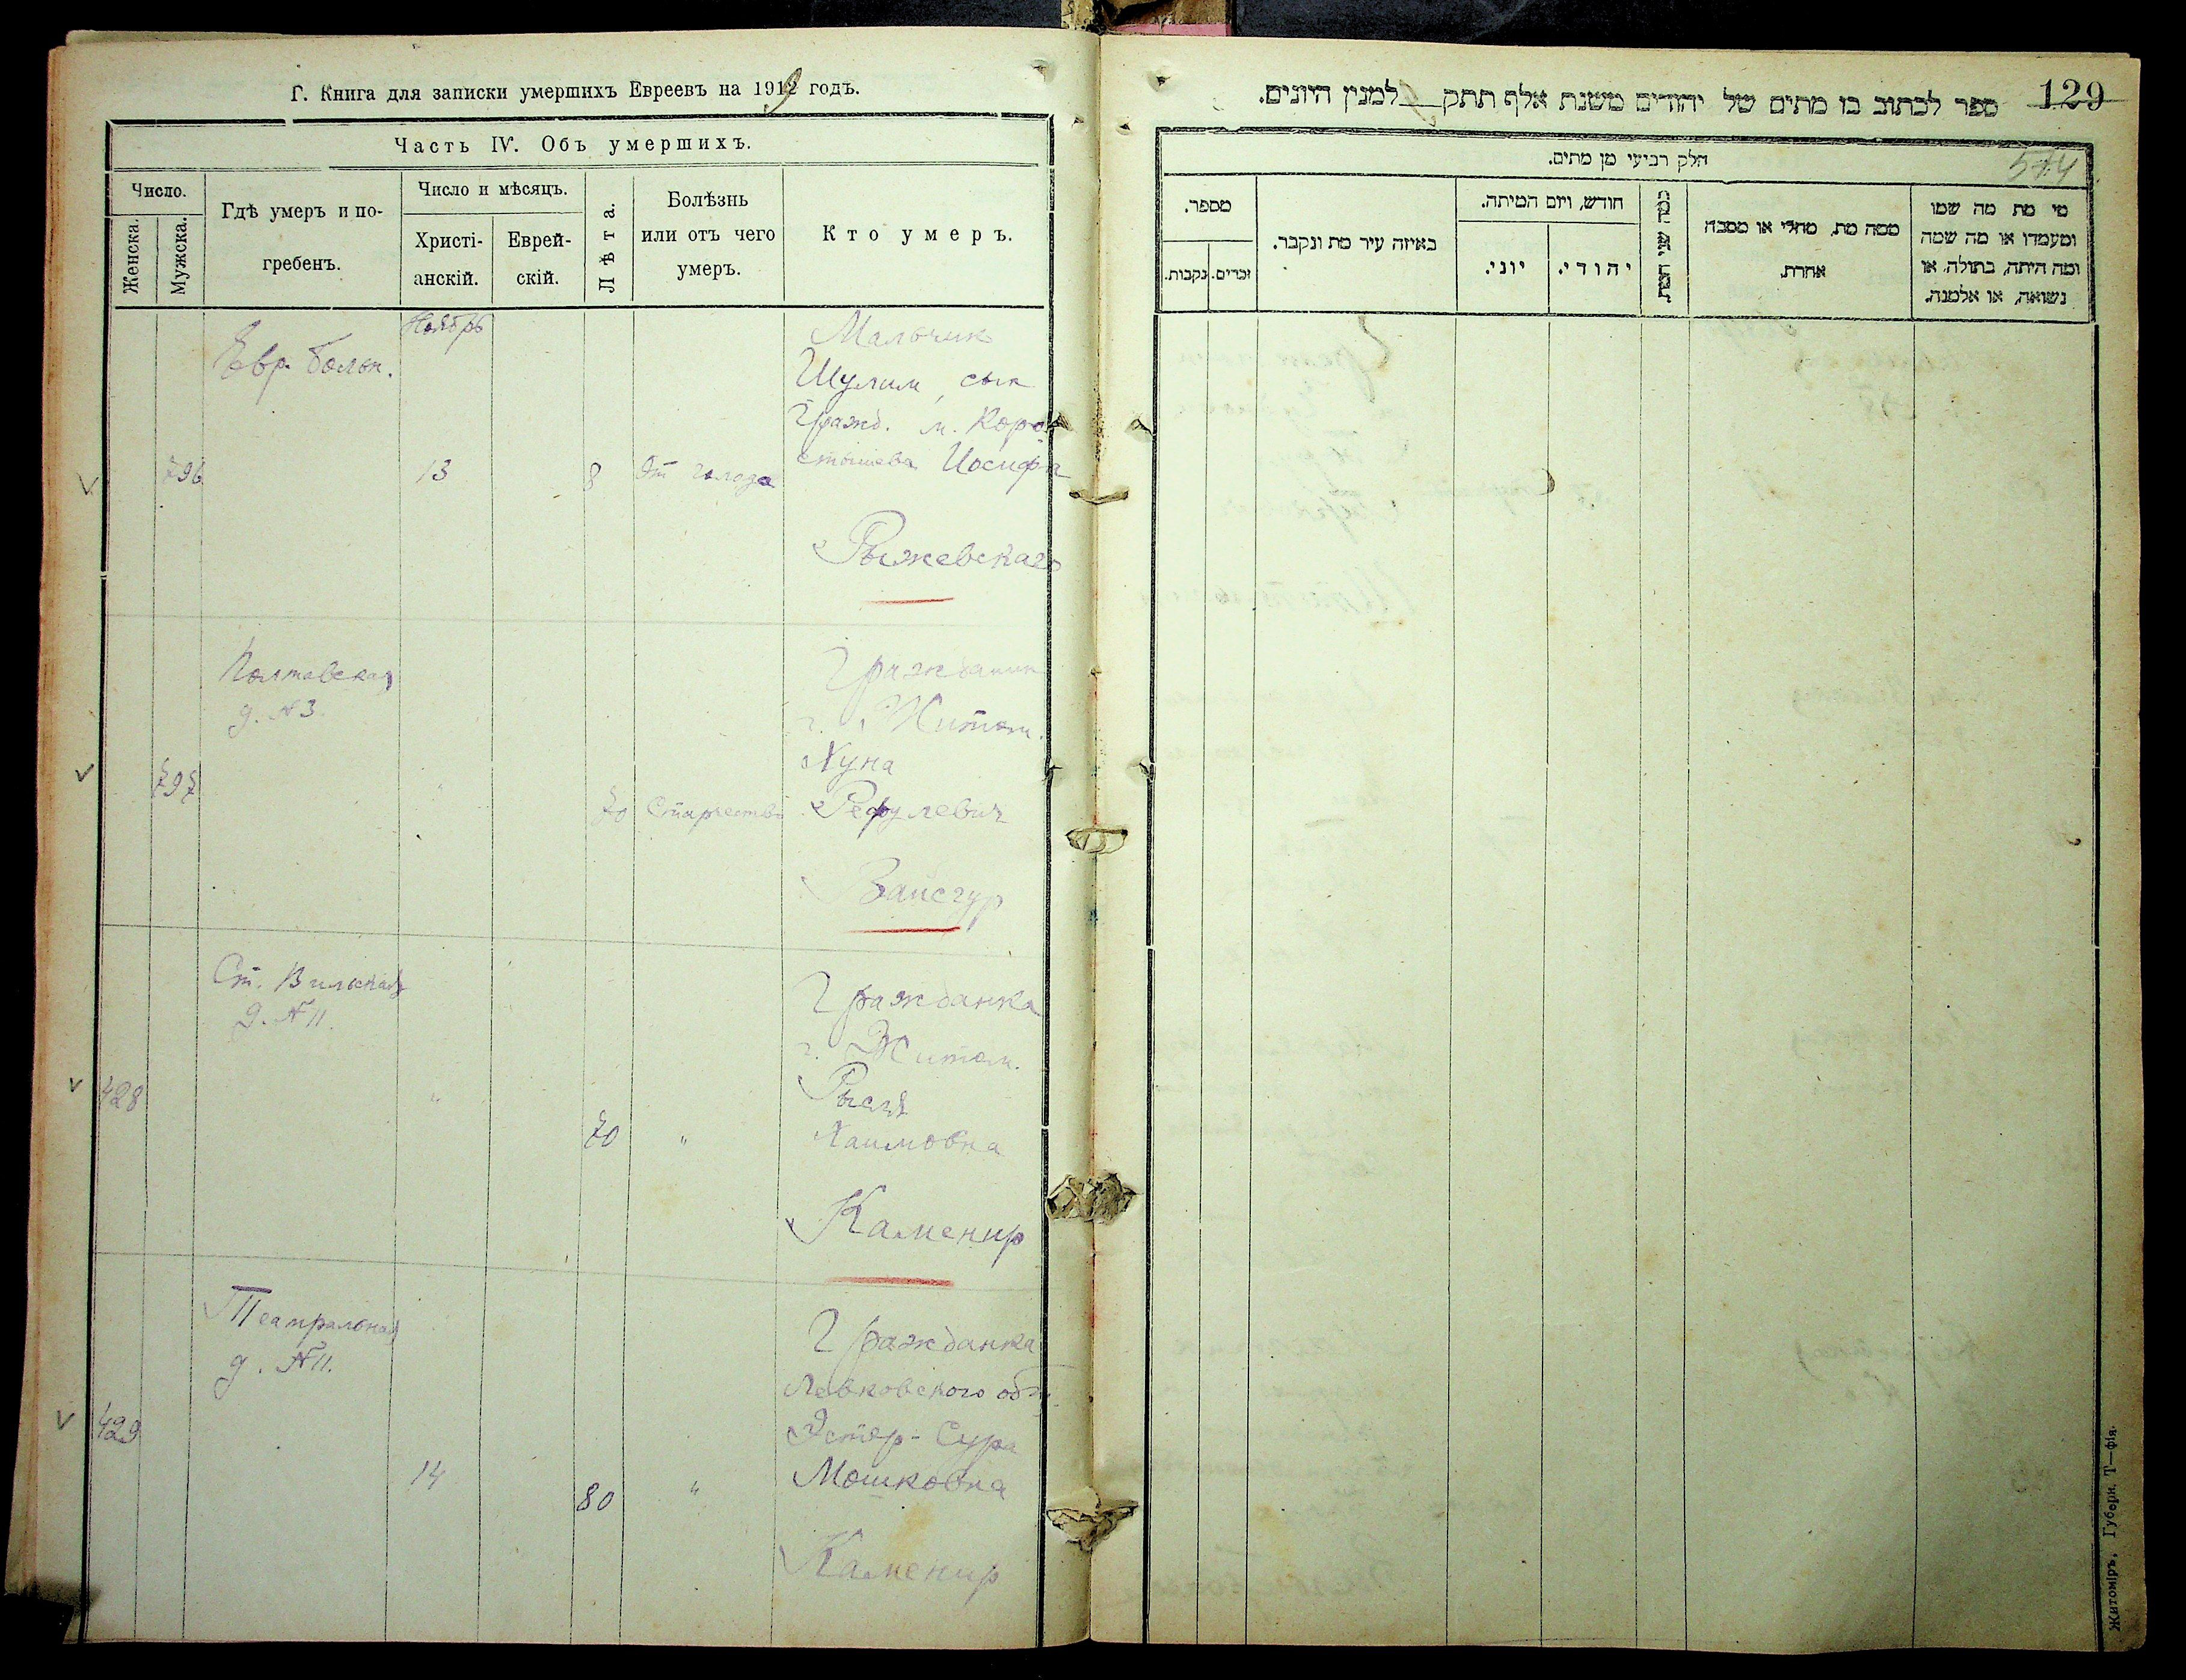 Г. Книга для записки умершихъ Евреевъ на 1919 годъ.
Часть IV. Объ умершихъ.
Число.
Женска.
Мужска.
Гдѣ умеръ и по-
гребенъ.
Число и мѣсяцъ.
Христі-
анскій.
Еврей-
скій.
Лѣта.
Болѣзнь
или отъ чего
умеръ.
Кто умеръ.
Ноябрь
Евр. больн.
796
13
8
От голода
Мальчик
Шулим, сын
Гражд. м. Коро
стышева Иосифа
Рыжевскаго
Полтавская
д. № 3.
797
"
70
Старчество
Гражданин
г. Житом.
Хуна
Рефулевич
Вайсгур
Ст. Вильская
д. № 11.
428
"
70
"
Гражданка
г. Житом.
Рысл
Хаимовна
Каменир
Театральная
д. № 11.
429
14
80
"
Гражданка
Левковского общ.
Эстер-Сура
Мошковна
Каменир
ספר לכתוב בו מתים של יהודים משנת אלף תתק למנין היונים.
129
574
חלק רביעי מן מתים.
מספר.
נקבות.
זכרים.
באיזה עיר מת ונקבר.
חודש, ויום המיתה.
יוני.
יהודי.
כמה שני המת.
ממה מת, מחלי או מסבה
אחרת.
מי מת מה שמו
ומעמדו או מה שמה
ומה היתה, בתולה, או
נשואה, או אלמנה.
Житоміръ, Губерн. Т—фія.